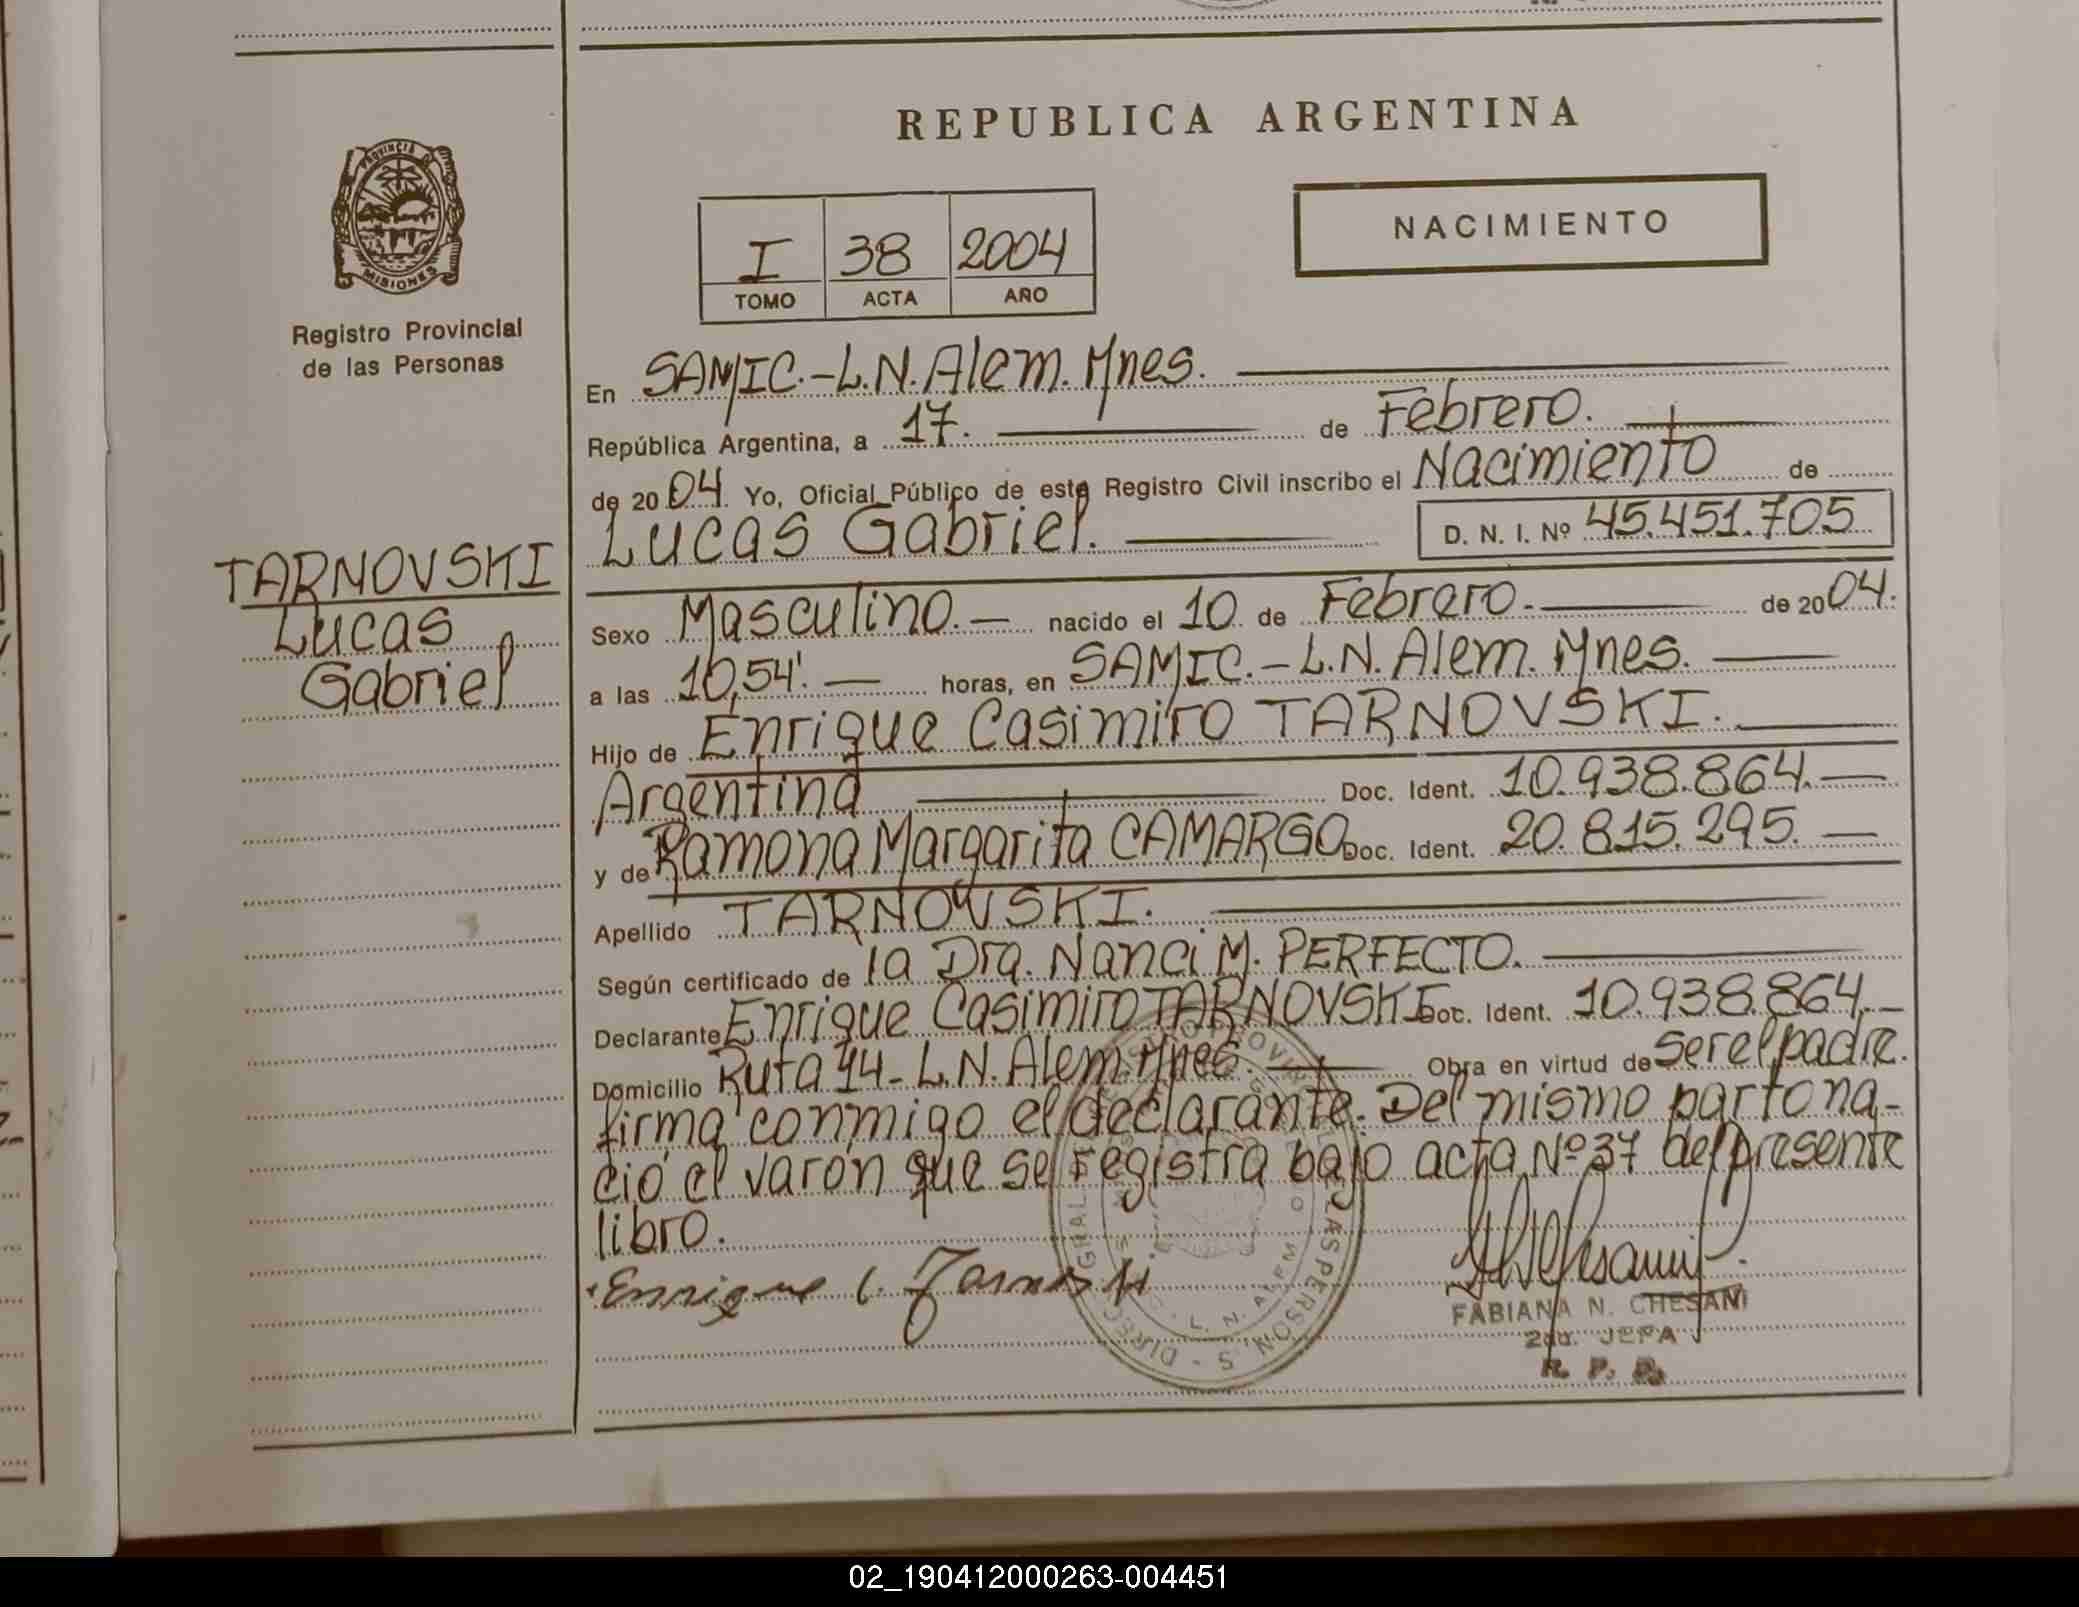 REPUBLICA ARGENTINA
PROVINCIA DE
MISIONES
Registro Provincial
de las Personas
I 38 2004
TOMO ACTA AÑO
NACIMIENTO
En SAMIC.-L.N.Alem.Mnes.
República Argentina, a 17. de Febrero.
de 2004. Yo, Oficial Público de este Registro Civil inscribo el Nacimiento de
Lucas Gabriel. D. N. I. Nº 45.451.705
TARNOVSKI
Lucas
Gabriel
Sexo Masculino.- nacido el 10 de Febrero.- de 2004.
a las 10,54'. horas, en SAMIC.-L.N.Alem.Mnes.
Hijo de Enrique Casimiro TARNOVSKI.
Argentina Doc. Ident. 10.938.864.
y de Ramona Margarita CAMARGO Doc. Ident. 20.815.295.
Apellido TARNOVSKI.
Según certificado de la Dra. Nanci M. PERFECTO.
Declarante Enrique Casimiro TARNOVSKI Doc. Ident. 10.938.864.
Domicilio Ruta 14-L.N.Alem.Mnes. Obra en virtud de ser el padre.
firma conmigo el declarante. Del mismo parto na-
ció el varón que se registra bajo acta Nº 37 del presente
libro.
Enrique C. Tarnovski
FABIANA N. CHESANI
2da. JEFA
R. P. P.
02_190412000263-004451